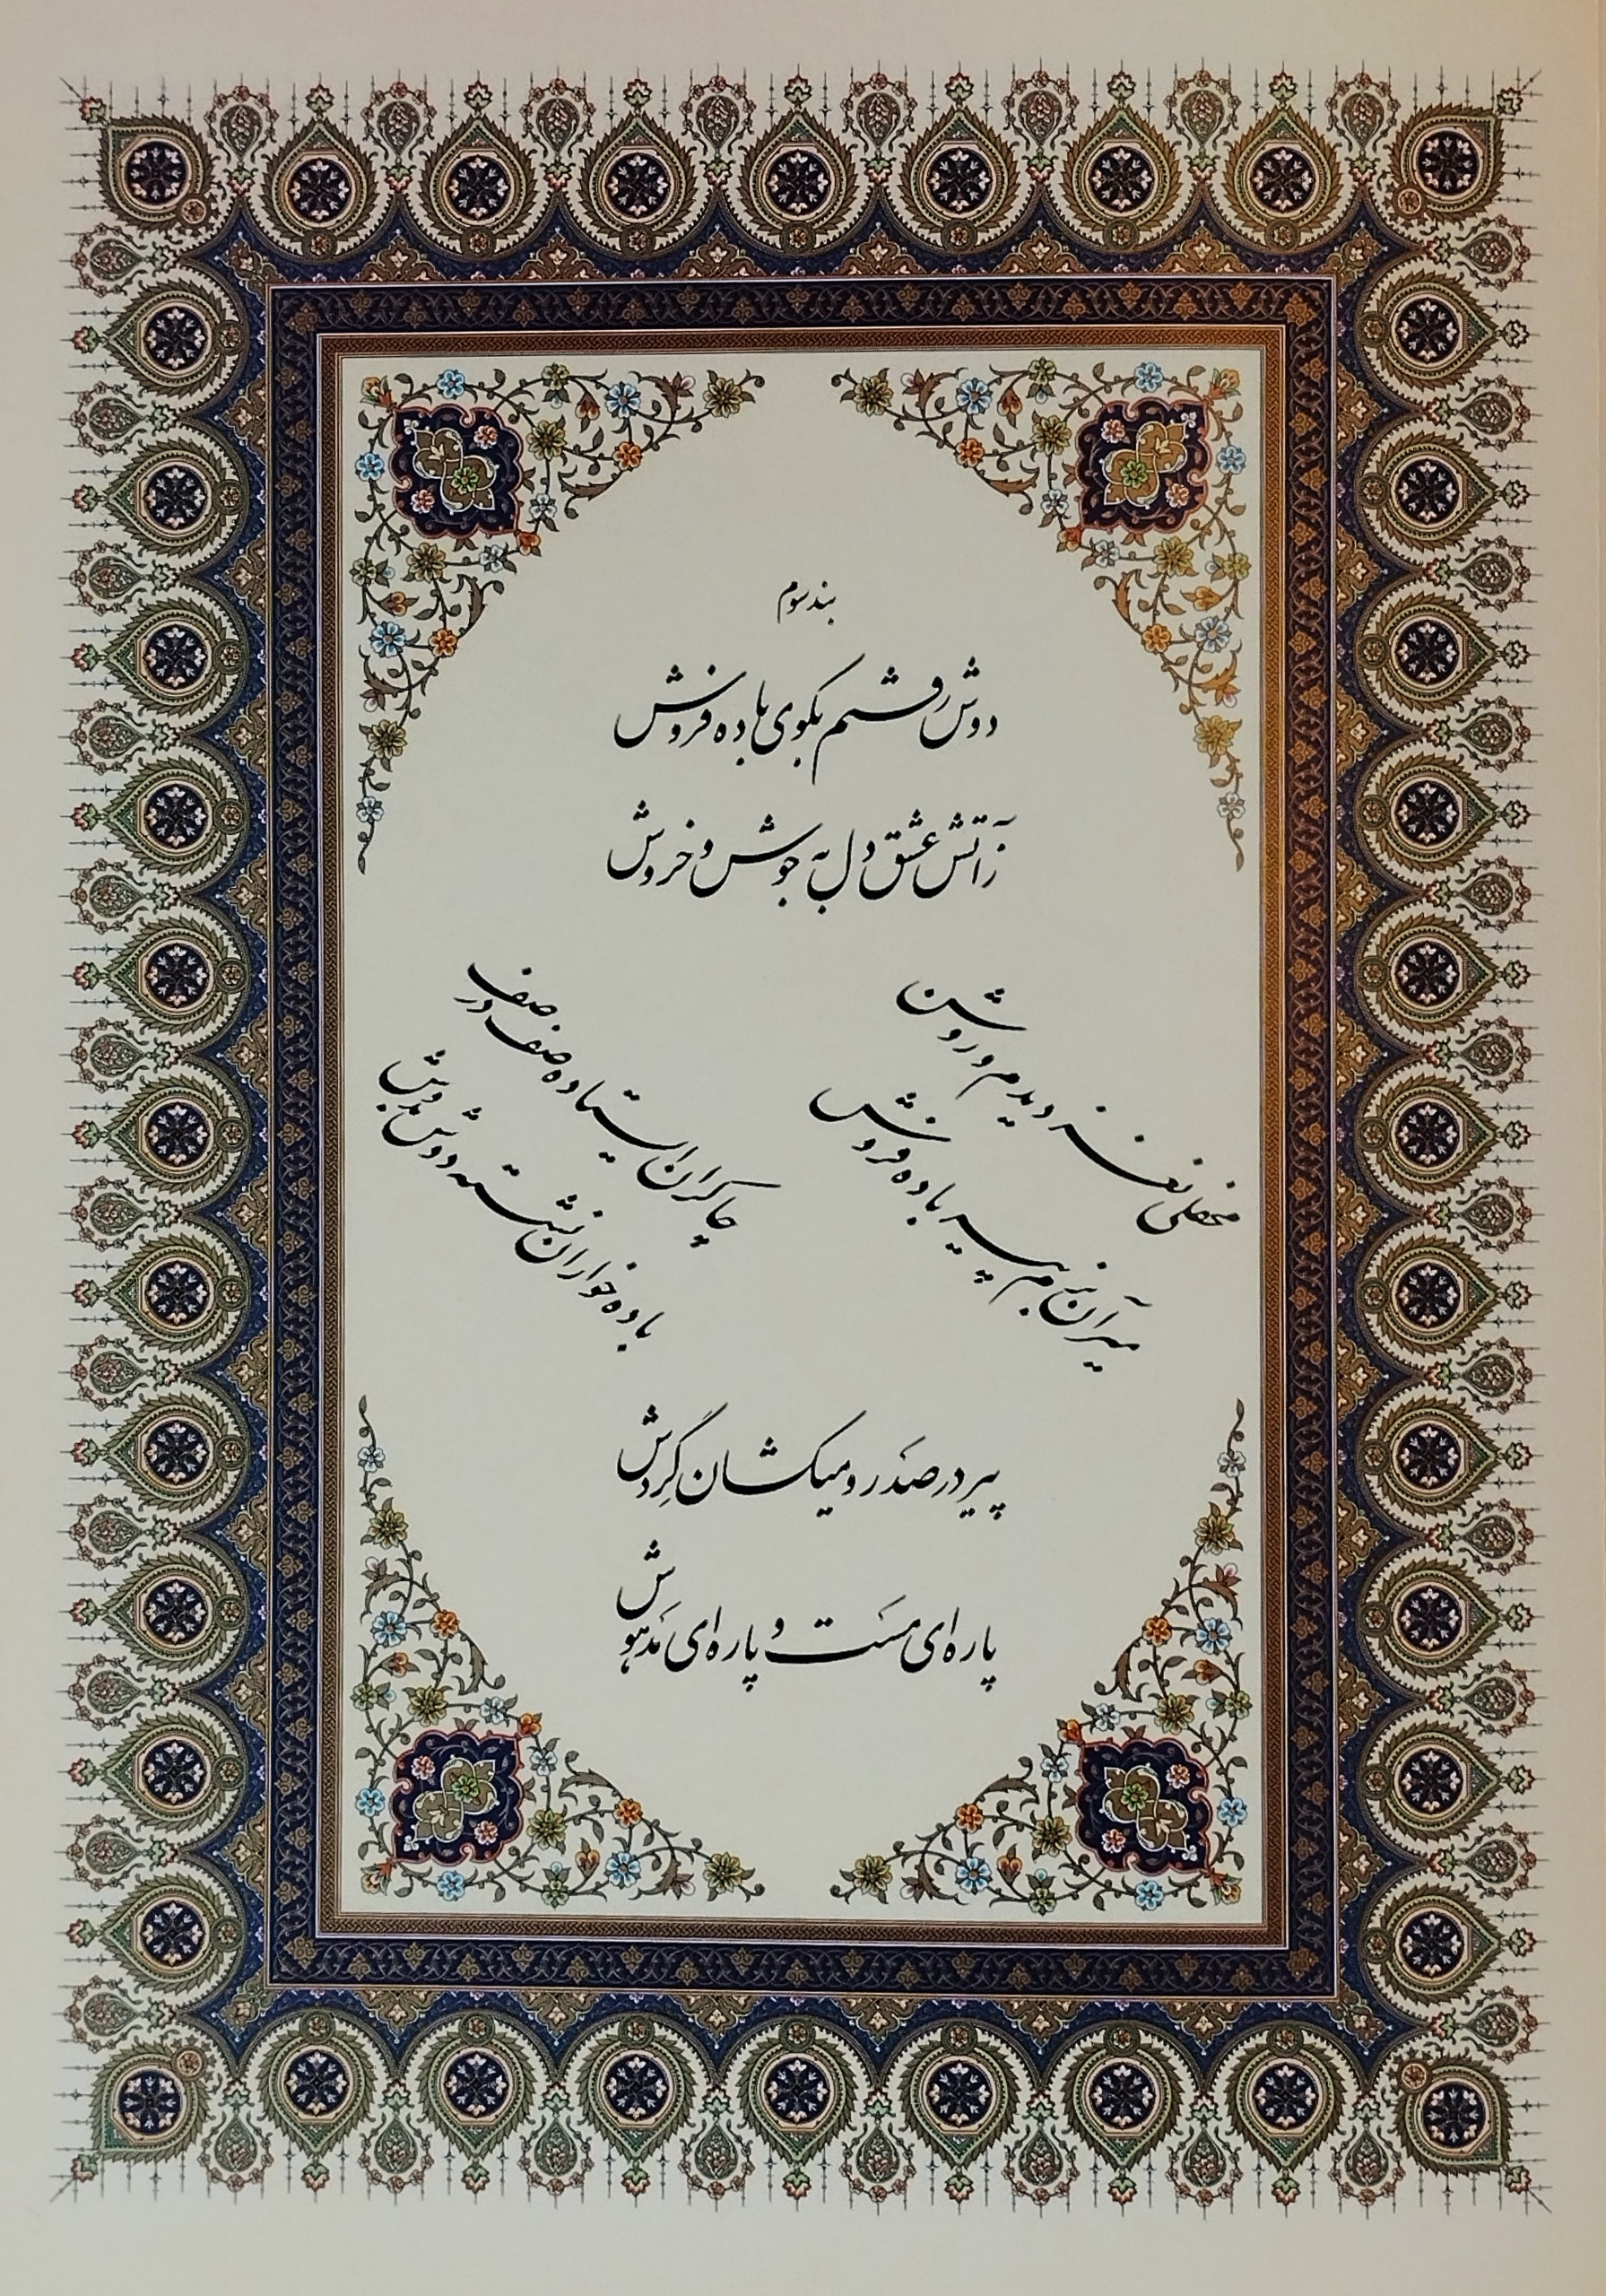 بند سوم
دوش رفتم بکوی باده فروش
زآتش عشق دل به جوش و خروش
محفلی نغز دیدم و روشن
میر آن بزم پیر باده فروش
چاکران ایستاده صف در صف
باده خواران نشسته دوش بدوش
پیر در صدر و میکشان گردش
پاره ای مست و پاره ای مدهوش